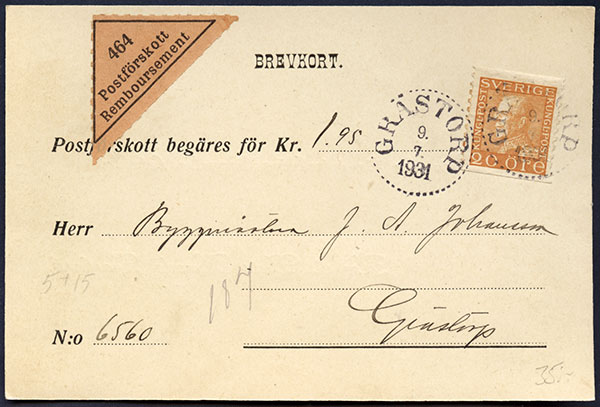 464
Postförskott
Remboursement
BREVKORT.
SVERIGE
KUNGL.POST KUNGL.POST
20 ÖRE
GRÄSTORP
9.
7.
1931
Postförskott begäres för Kr. 1.95
Herr Byggmästare J. A. Johansson
5+15
184
Grästorp
N:o 6560
35:-